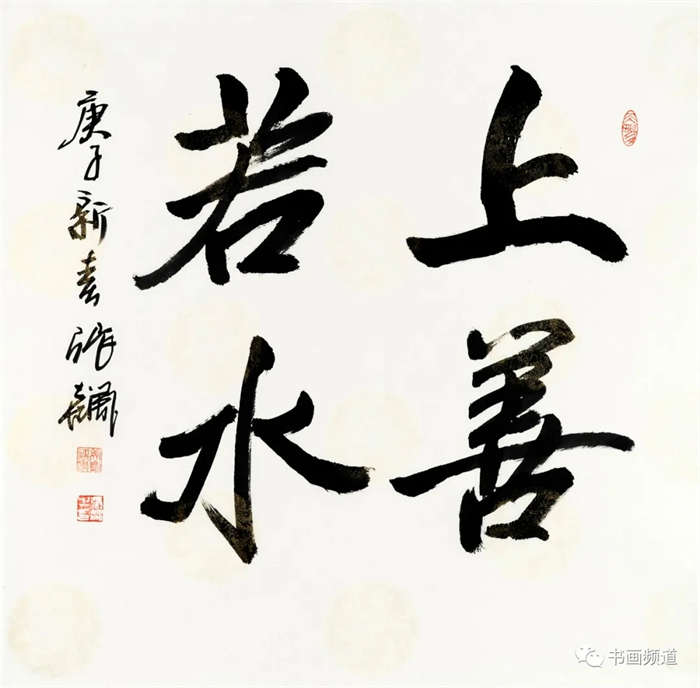 上善
若水
庚子新春
书画频道